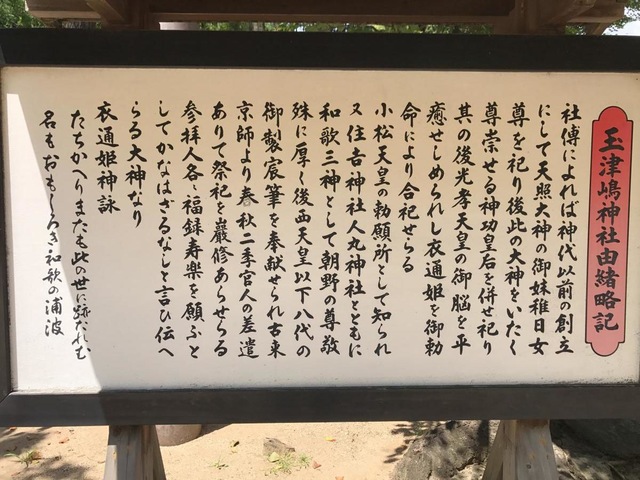 玉津嶋神社由緒略記
社傳によれば神代以前の創立
にして天照大神の御妹稚日女
尊を祀り後此の大神をいたく
尊崇せる神功皇后を併せ祀り
其の後光孝天皇の御脳を平
癒せしめられし衣通姫を御勅
命により合祀せらる
小松天皇の勅願所として知られ
又住吉神社人丸神社とともに
和歌三神として朝野の尊敬
殊に厚く後西天皇以下八代の
御製宸筆を奉献せられ古来
京師より春秋二季官人の差遣
ありて祭祀を嚴修あらせらる
参拝人各々福録寿楽を願ふと
してかなはざるなしと言ひ伝へ
らる大神なり
衣通姫神詠
たちかへりまたも此の世に跡たれむ
名もおもしろき和歌の浦波